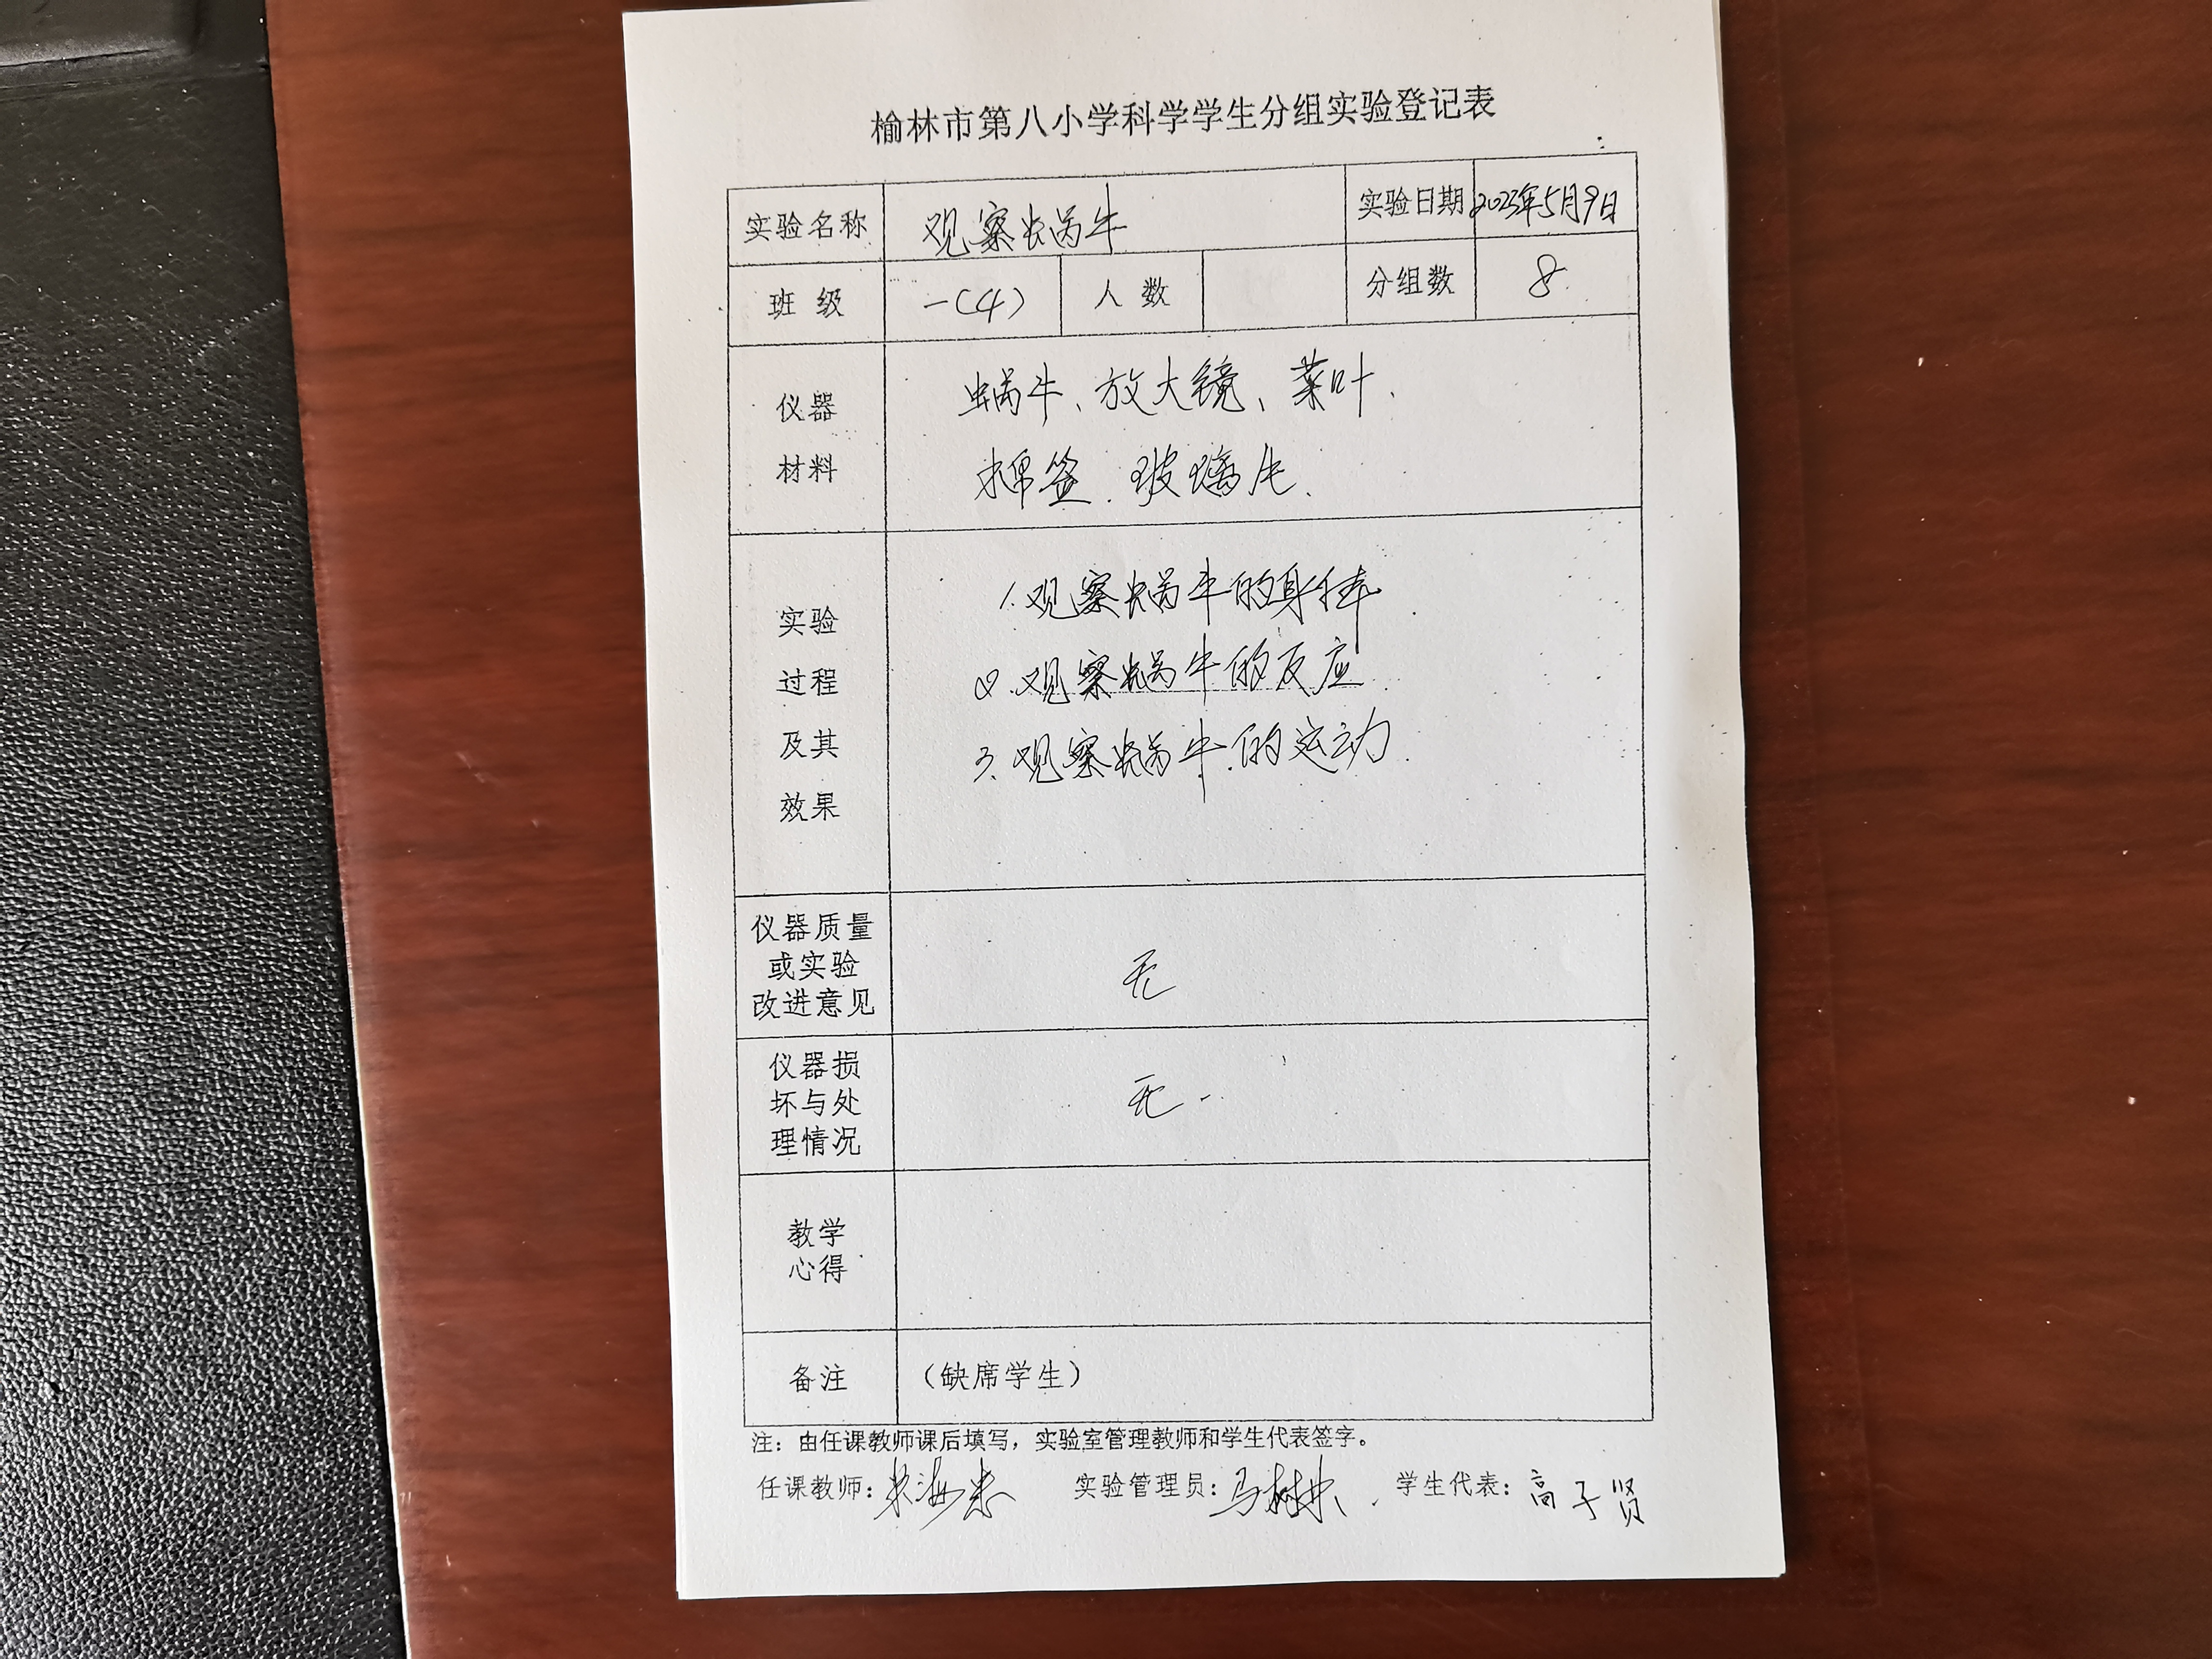 榆林市第八小学科学学生分组实验登记表
实验名称 观察蜗牛 实验日期 2023年5月9日
班 级 一(4) 人 数 分组数 8
仪器
材料
蜗牛、放大镜、菜叶、
棉签、玻璃片、
实验
过程
及其
效果
1.观察蜗牛的身体
2.观察蜗牛的反应
3.观察蜗牛的运动
仪器质量
或实验
改进意见
无
仪器损
坏与处
理情况
无.
教学
心得
备注 (缺席学生)
注：由任课教师课后填写，实验室管理教师和学生代表签字。
任课教师： 实验管理员： 学生代表：高子贤